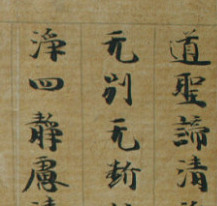 道聖諦清
无別无斷
淨四靜慮